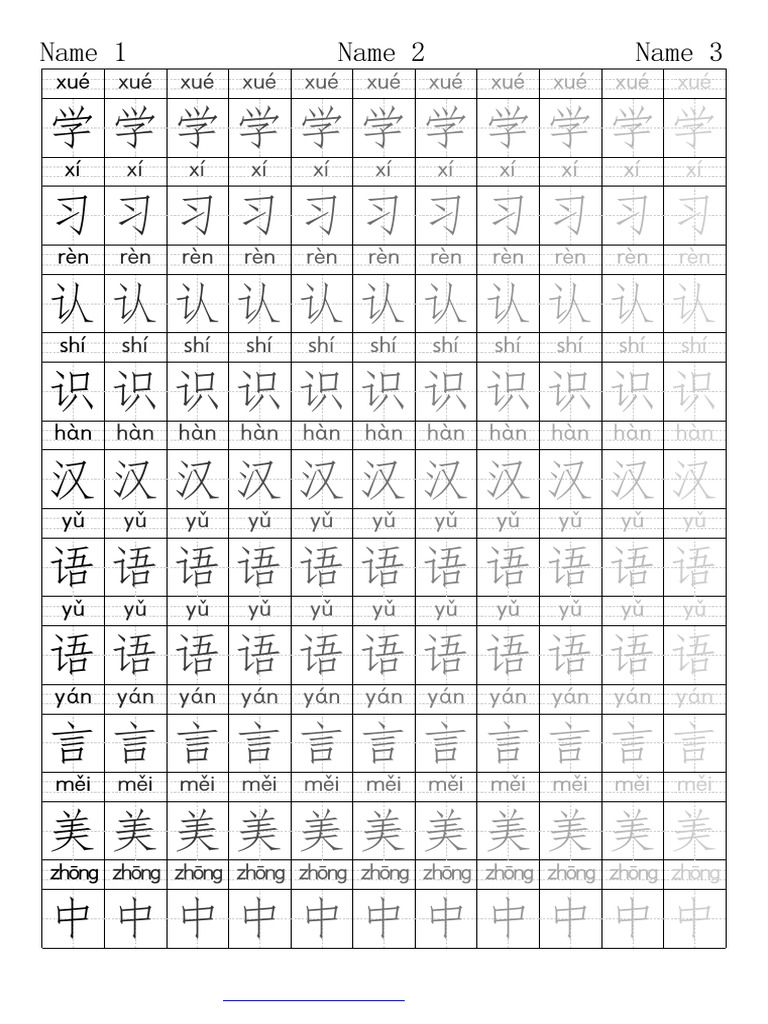 Name 1 Name 2 Name 3
xué xué xué xué xué xué xué xué xué xué xué
学 学 学 学 学 学 学 学 学 学 学
xí xí xí xí xí xí xí xí xí xí xí
习 习 习 习 习 习 习 习 习 习 习
rèn rèn rèn rèn rèn rèn rèn rèn rèn rèn rèn
认 认 认 认 认 认 认 认 认 认 认
shí shí shí shí shí shí shí shí shí shí shí
识 识 识 识 识 识 识 识 识 识 识
hàn hàn hàn hàn hàn hàn hàn hàn hàn hàn hàn
汉 汉 汉 汉 汉 汉 汉 汉 汉 汉 汉
yǔ yǔ yǔ yǔ yǔ yǔ yǔ yǔ yǔ yǔ yǔ
语 语 语 语 语 语 语 语 语 语 语
yǔ yǔ yǔ yǔ yǔ yǔ yǔ yǔ yǔ yǔ yǔ
语 语 语 语 语 语 语 语 语 语 语
yán yán yán yán yán yán yán yán yán yán yán
言 言 言 言 言 言 言 言 言 言 言
měi měi měi měi měi měi měi měi měi měi měi
美 美 美 美 美 美 美 美 美 美 美
zhōng zhōng zhōng zhōng zhōng zhōng zhōng zhōng zhōng zhōng zhōng
中 中 中 中 中 中 中 中 中 中 中